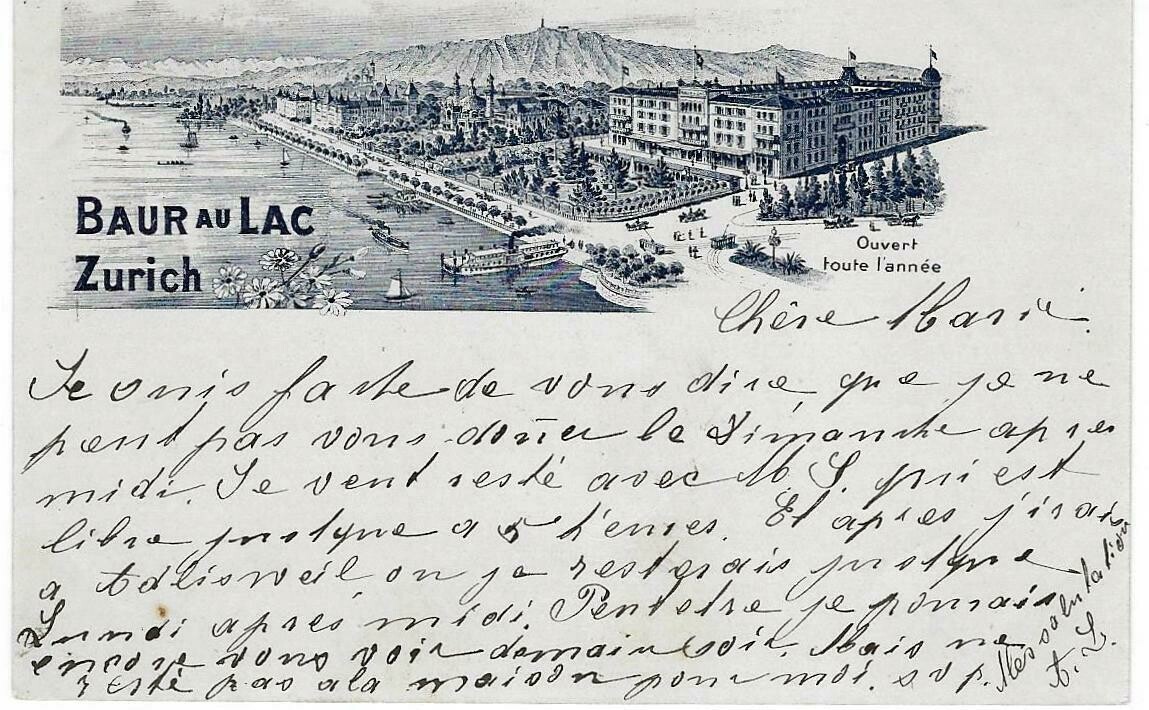 BAUR AU LAC
Zurich
Ouvert
toute l'année
Chère Marie.
Je suis faché de vous dire que je ne
peut pas vous doñer le Dimanche apres
midi. Je veut resté avec M. S. qui est
libre jusque a 5 h'eures. Et apres j'irais
a Adlisweil ou je resterais jusque
Lundi aprés midi. Pentetre je pourrais
encore vous voir demain soir. Mais ne
resté pas a la maison pour moi. s v p.
Mes salutation
A. L.